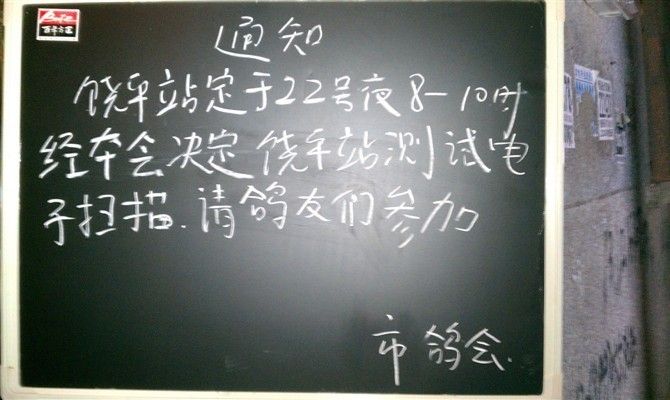 百年方圆
通知
饶平站定于22号夜8-10时
经本会决定饶平站测试电
子扫描.请鸽友们参加
市鸽会.